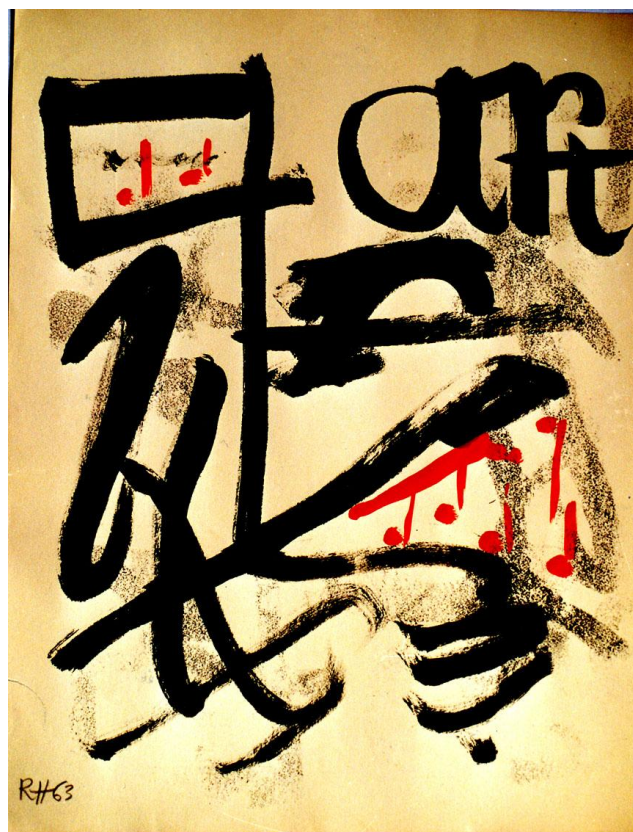 art
RH63